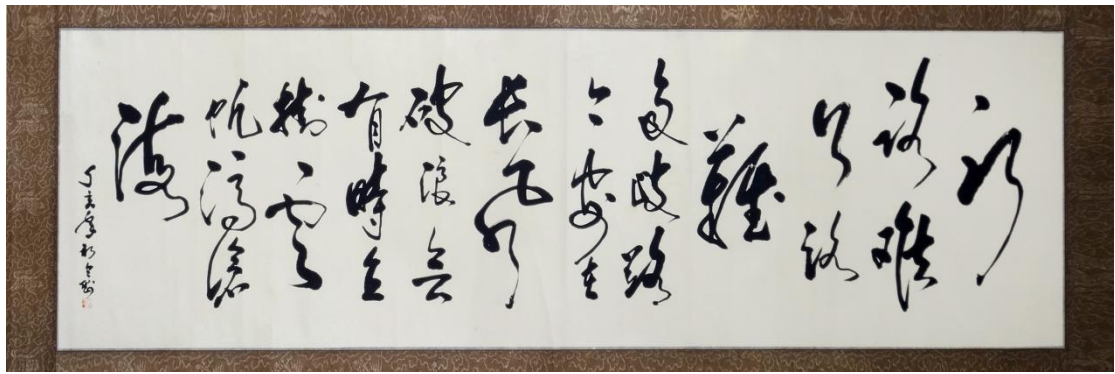 行
路難
行路
難
多歧路
今安在
長風
破浪會
有時直
掛雲
帆濟滄
海
丁亥